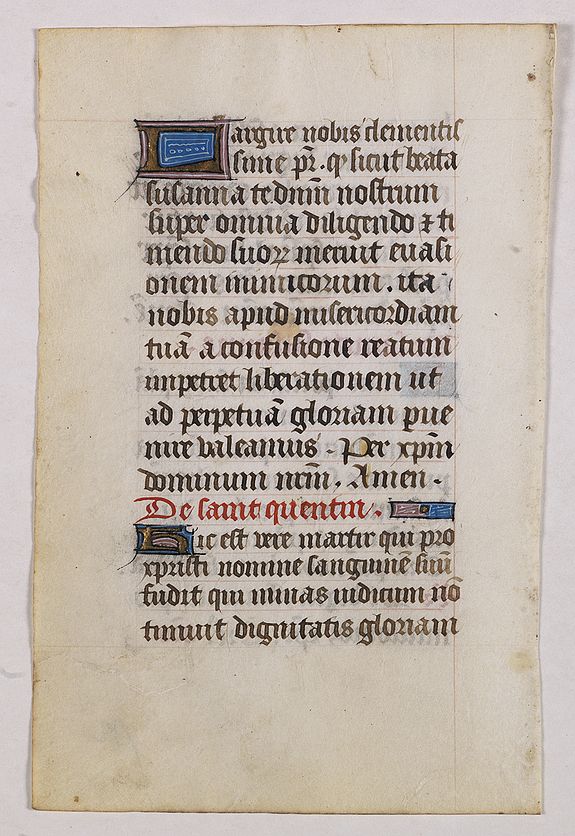 Largire nobis clementis
sime pr̃. qꝫ sicut beata
susanna te dnm̃ nostrum
super omnia diligendo ⁊ ti
mendo suoꝝ meruit euasi
onem inimicorum. ita
nobis apud misericordiam
tuã a confusione reatum
impetret liberationem ut
ad perpetuã gloriam pue
nire valeamus. Per xpm̃
dominum nrm̃. Amen.
De saint quentin.
Hic est vere martir qui pro
xpristi nomine sanguinẽ suũ
fudit qui minas iudicum nõ
timuit dignitatis gloriam